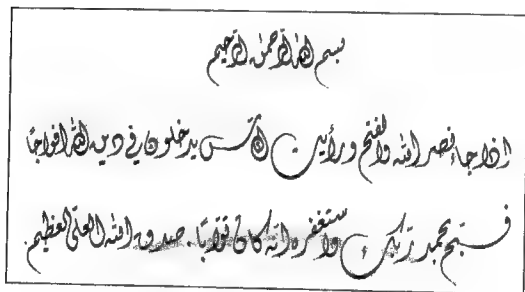 بسم الله الرحمن الرحيم
إذا جاء نصر الله والفتح ورأيت الناس يدخلون في دين الله افواجًا
فسبح بحمد ربك واستغفره انّه كان توّابًا. صدق الله العليّ العظيم.